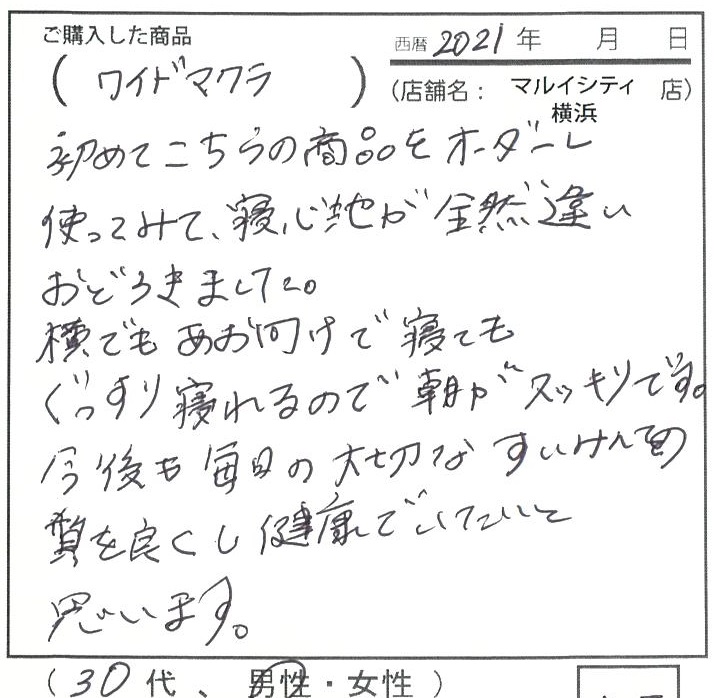 ご購入した商品
西暦 2021 年 月 日
( ワイドマクラ )
(店舗名： マルイシティ横浜 店)
初めてこちらの商品をオーダーし
使ってみて、寝心地が全然違い
おどろきました。
横でもあお向けで寝ても
ぐっすり寝れるので朝がスッキリです。
今後も毎日の大切なすいみんの
質を良くし健康でいたいと
思います。
(30代、男性・女性)